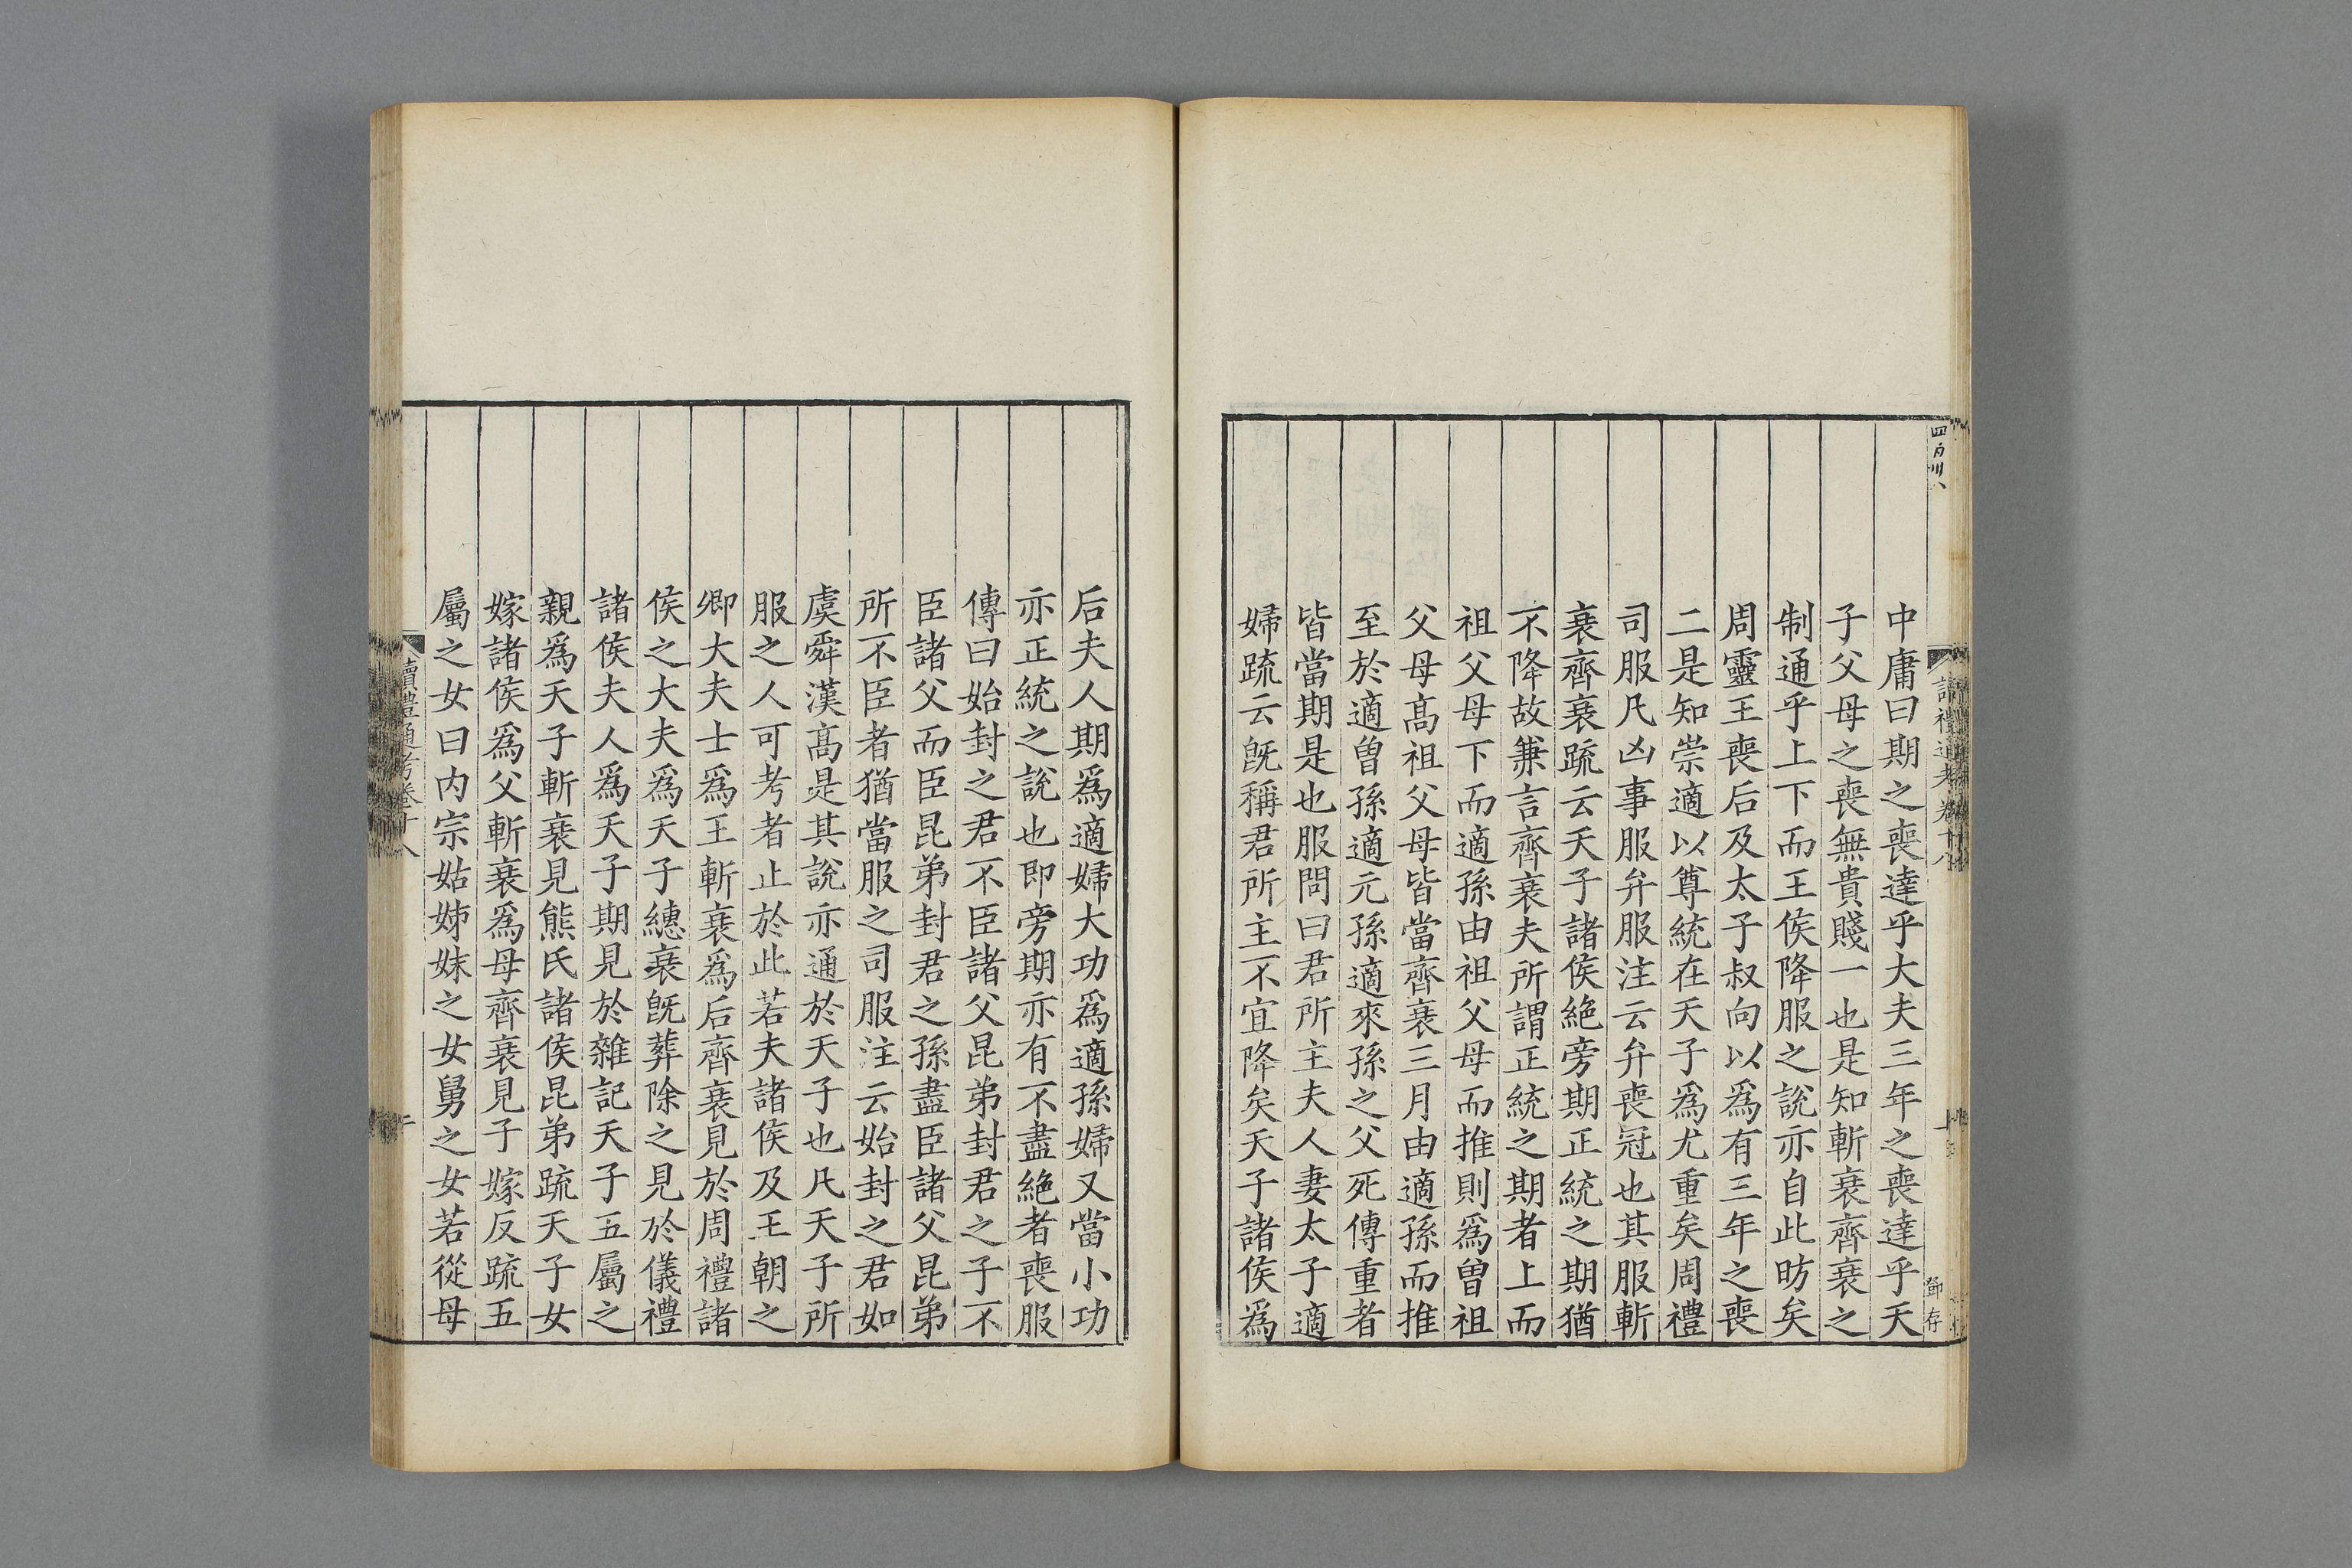 中庸曰期之喪達乎大夫三年之喪達乎天
子父母之喪無貴賤一也是知斬衰齊衰之
制通乎上下而王侯降服之說亦自此昉矣
周靈王喪后及太子叔向以為有三年之喪
二是知崇適以尊統在天子為尤重矣周禮
司服凡凶事服弁服注云弁喪冠也其服斬
衰齊衰疏云天子諸侯絶旁期正統之期猶
不降故兼言齊衰夫所謂正統之期者上而
祖父母下而適孫由祖父母而推則為曾祖
父母髙祖父母皆當齊衰三月由適孫而推
至於適曾孫適元孫適來孫之父死傳重者
皆當期是也服問曰君所主夫人妻太子適
婦疏云旣稱君所主不宜降矣天子諸侯為
后夫人期為適婦大功為適孫婦又當小功
亦正統之說也即旁期亦有不盡絶者喪服
傳曰始封之君不臣諸父昆弟封君之子不
臣諸父而臣昆弟封君之孫盡臣諸父昆弟
所不臣者猶當服之司服注云始封之君如
虞舜漢髙是其說亦通於天子也凡天子所
服之人可考者止於此若夫諸侯及王朝之
卿大夫士為王斬衰為后齊衰見於周禮諸
侯之大夫為天子繐衰旣葬除之見於儀禮
諸侯夫人為天子期見於雜記天子五屬之
親為天子斬衰見熊氏諸侯昆弟疏天子女
嫁諸侯為父斬衰為母齊衰見子嫁反疏五
屬之女曰内宗姑姊妹之女舅之女若從母
讀禮通考卷十八